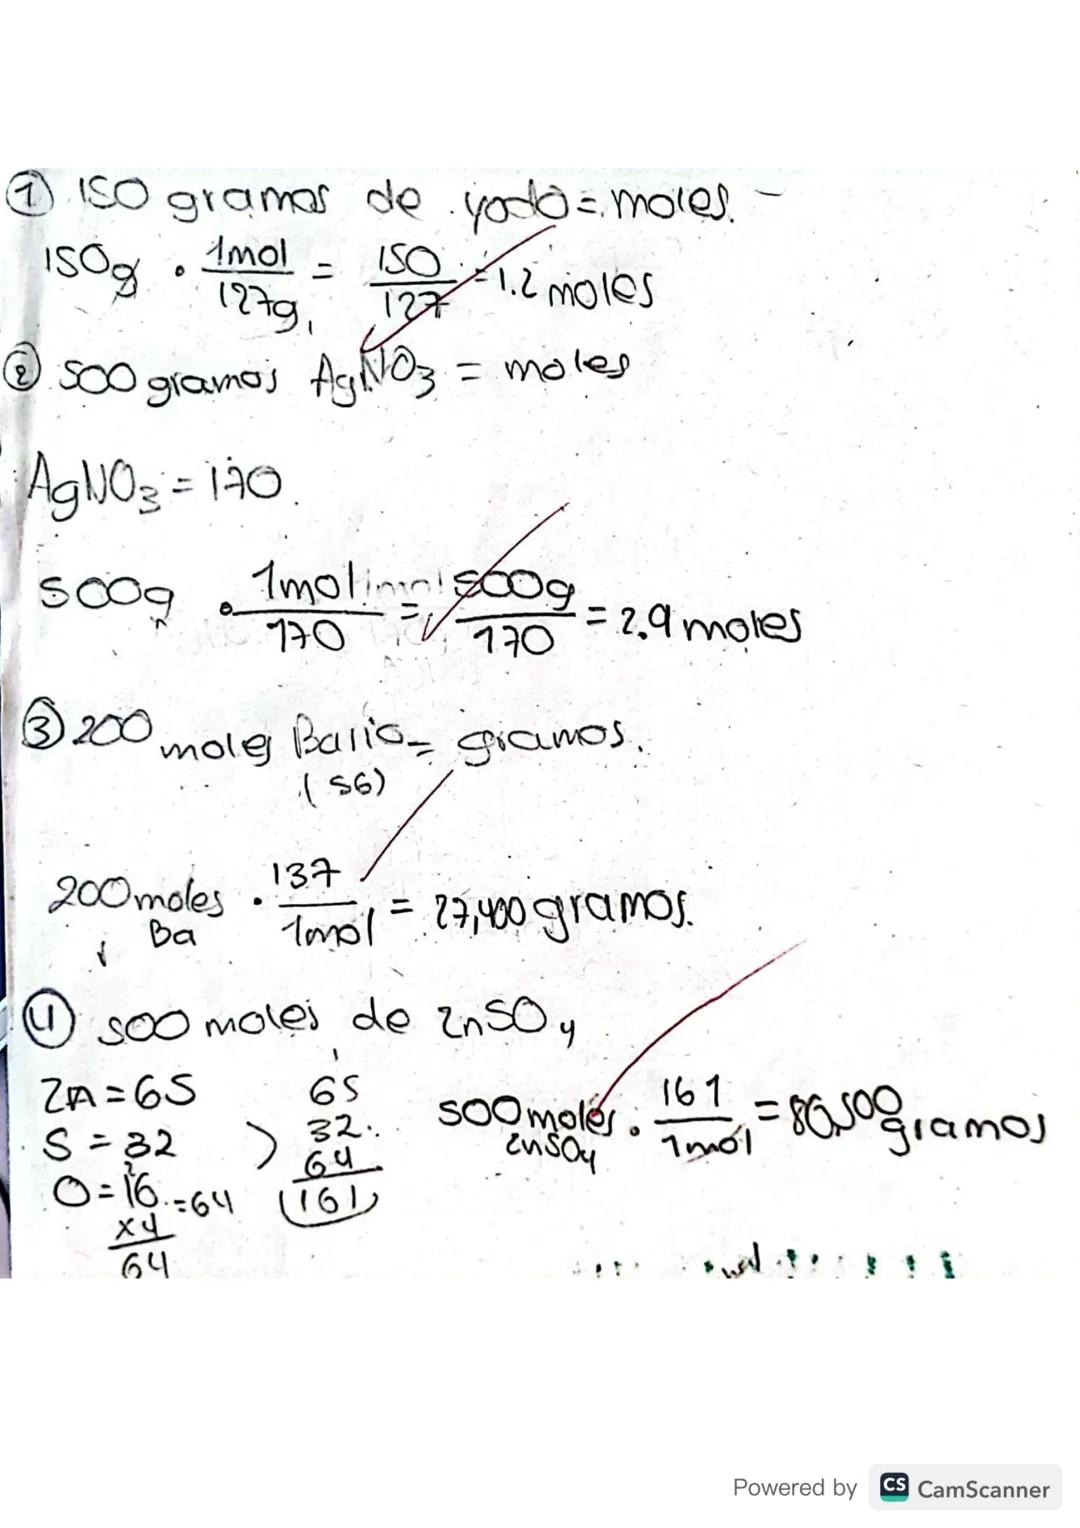 ① 150 gramos de yodo = moles.
150g · 1mol/127g = 150/127 = 1.2 moles
② 500 gramos AgNO3 = moles
AgNO3 = 170
500g · 1mol/170 = 500g/170 = 2.9 moles
③ 200 moles Bario = gramos.
(56)
200 moles Ba · 137/1mol = 27,400 gramos.
④ 500 moles de ZnSO4
Zn = 65
S = 32
O = 16 = 64
x4
64
65
32
64
161
500 moles ZnSO4 · 161/1mol = 80,500 gramos
Powered by CS CamScanner